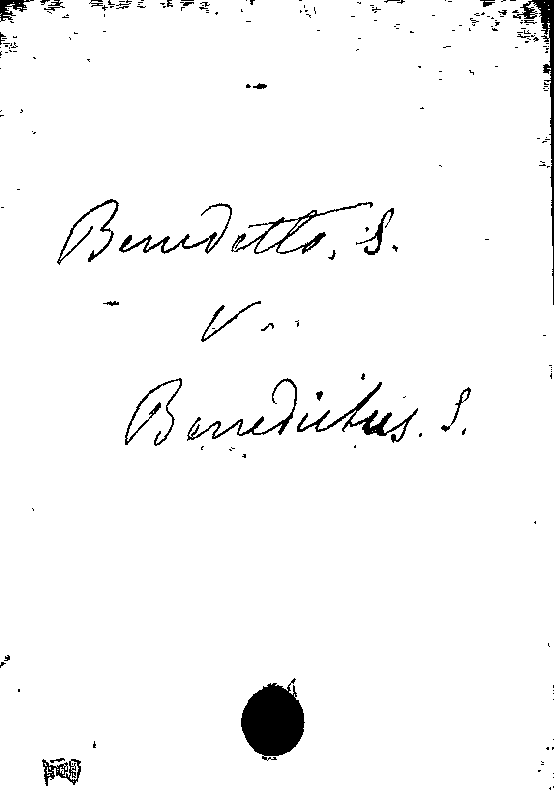 Benedetto, S.
V.
Benedictus. S.